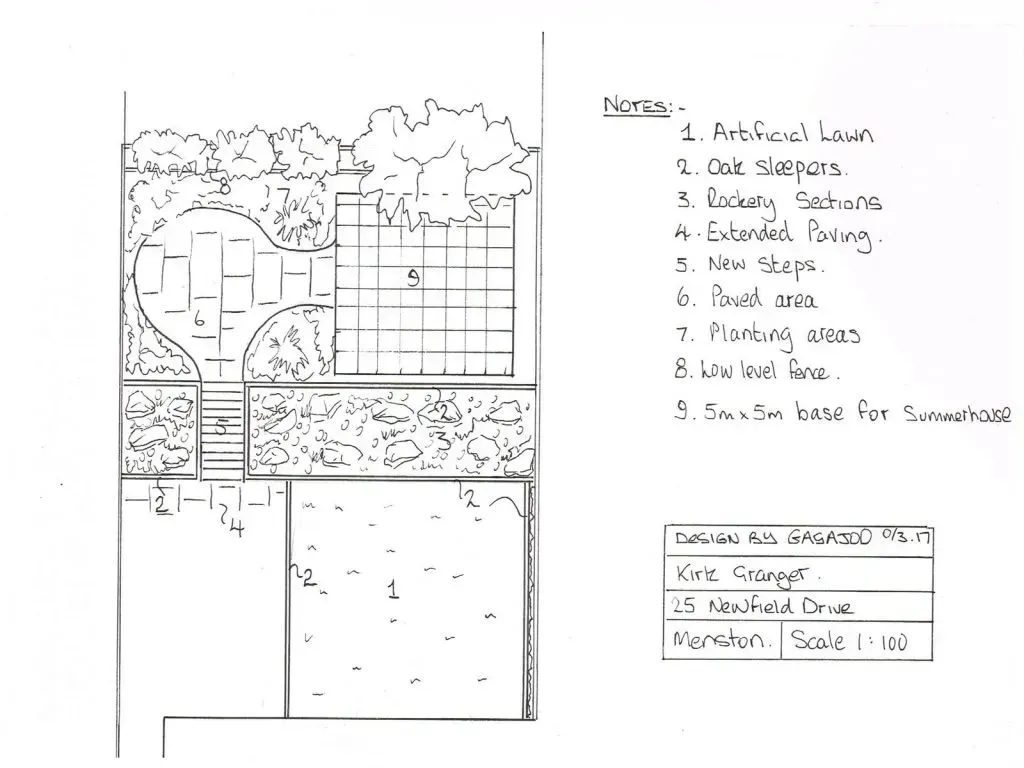 NOTES:-
1. Artificial Lawn
2. Oak sleepers.
3. Rockery Sections
4. Extended Paving.
5. New Steps.
6. Paved area
7. Planting areas
8. Low level fence.
9. 5m x 5m base for Summerhouse
8
7
9
6
2
5
3
2
4
2
2
1
DESIGN BY GAGAJOO
Kirk Granger.
25 Newfield Drive
Menston. Scale 1:100